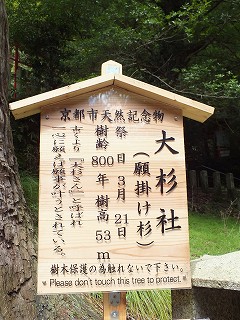 京都市天然記念物
大杉社
(願掛け杉)
祭日 3月21日
樹齢800年 樹高53m
古くより『大杉さん』と呼ばれ
一心に願えば願事が叶うとされている。
樹木保護の為触れないで下さい。
Please don't touch this tree to protect.